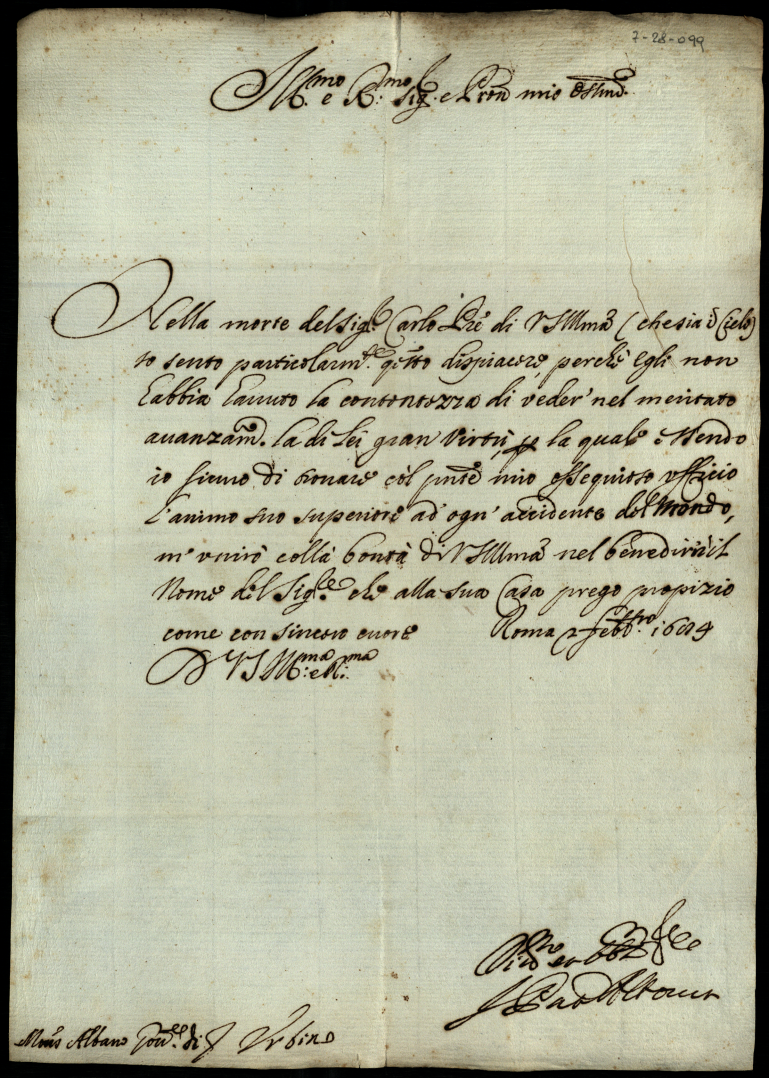 7-28-099
Ill.mo e R.mo Sig.r e Pron mio Oss.mo
Nella morte del Sig.r Carlo Pre di VSIllma (che sia i Cielo)
io sento particolarm.te questo dispiacere, perche Egli non
habbia havuto la contentezza di veder' nel meritato
avanzam. la di lei gran Virtù, per la quale essendo
io sicuro di trovare col pnte mio ossequioso ufficio
l'animo suo superiore ad ogn' accidente del Mondo,
m'unirò colla bontà di VSIllma nel benedire il
Nome del Sig.re che alla sua Casa prego propizio
come con sincero cuore Roma 2 Febb.ro 1684
Di VSIll.ma e R.ma
Albano Gov.re di Urbino